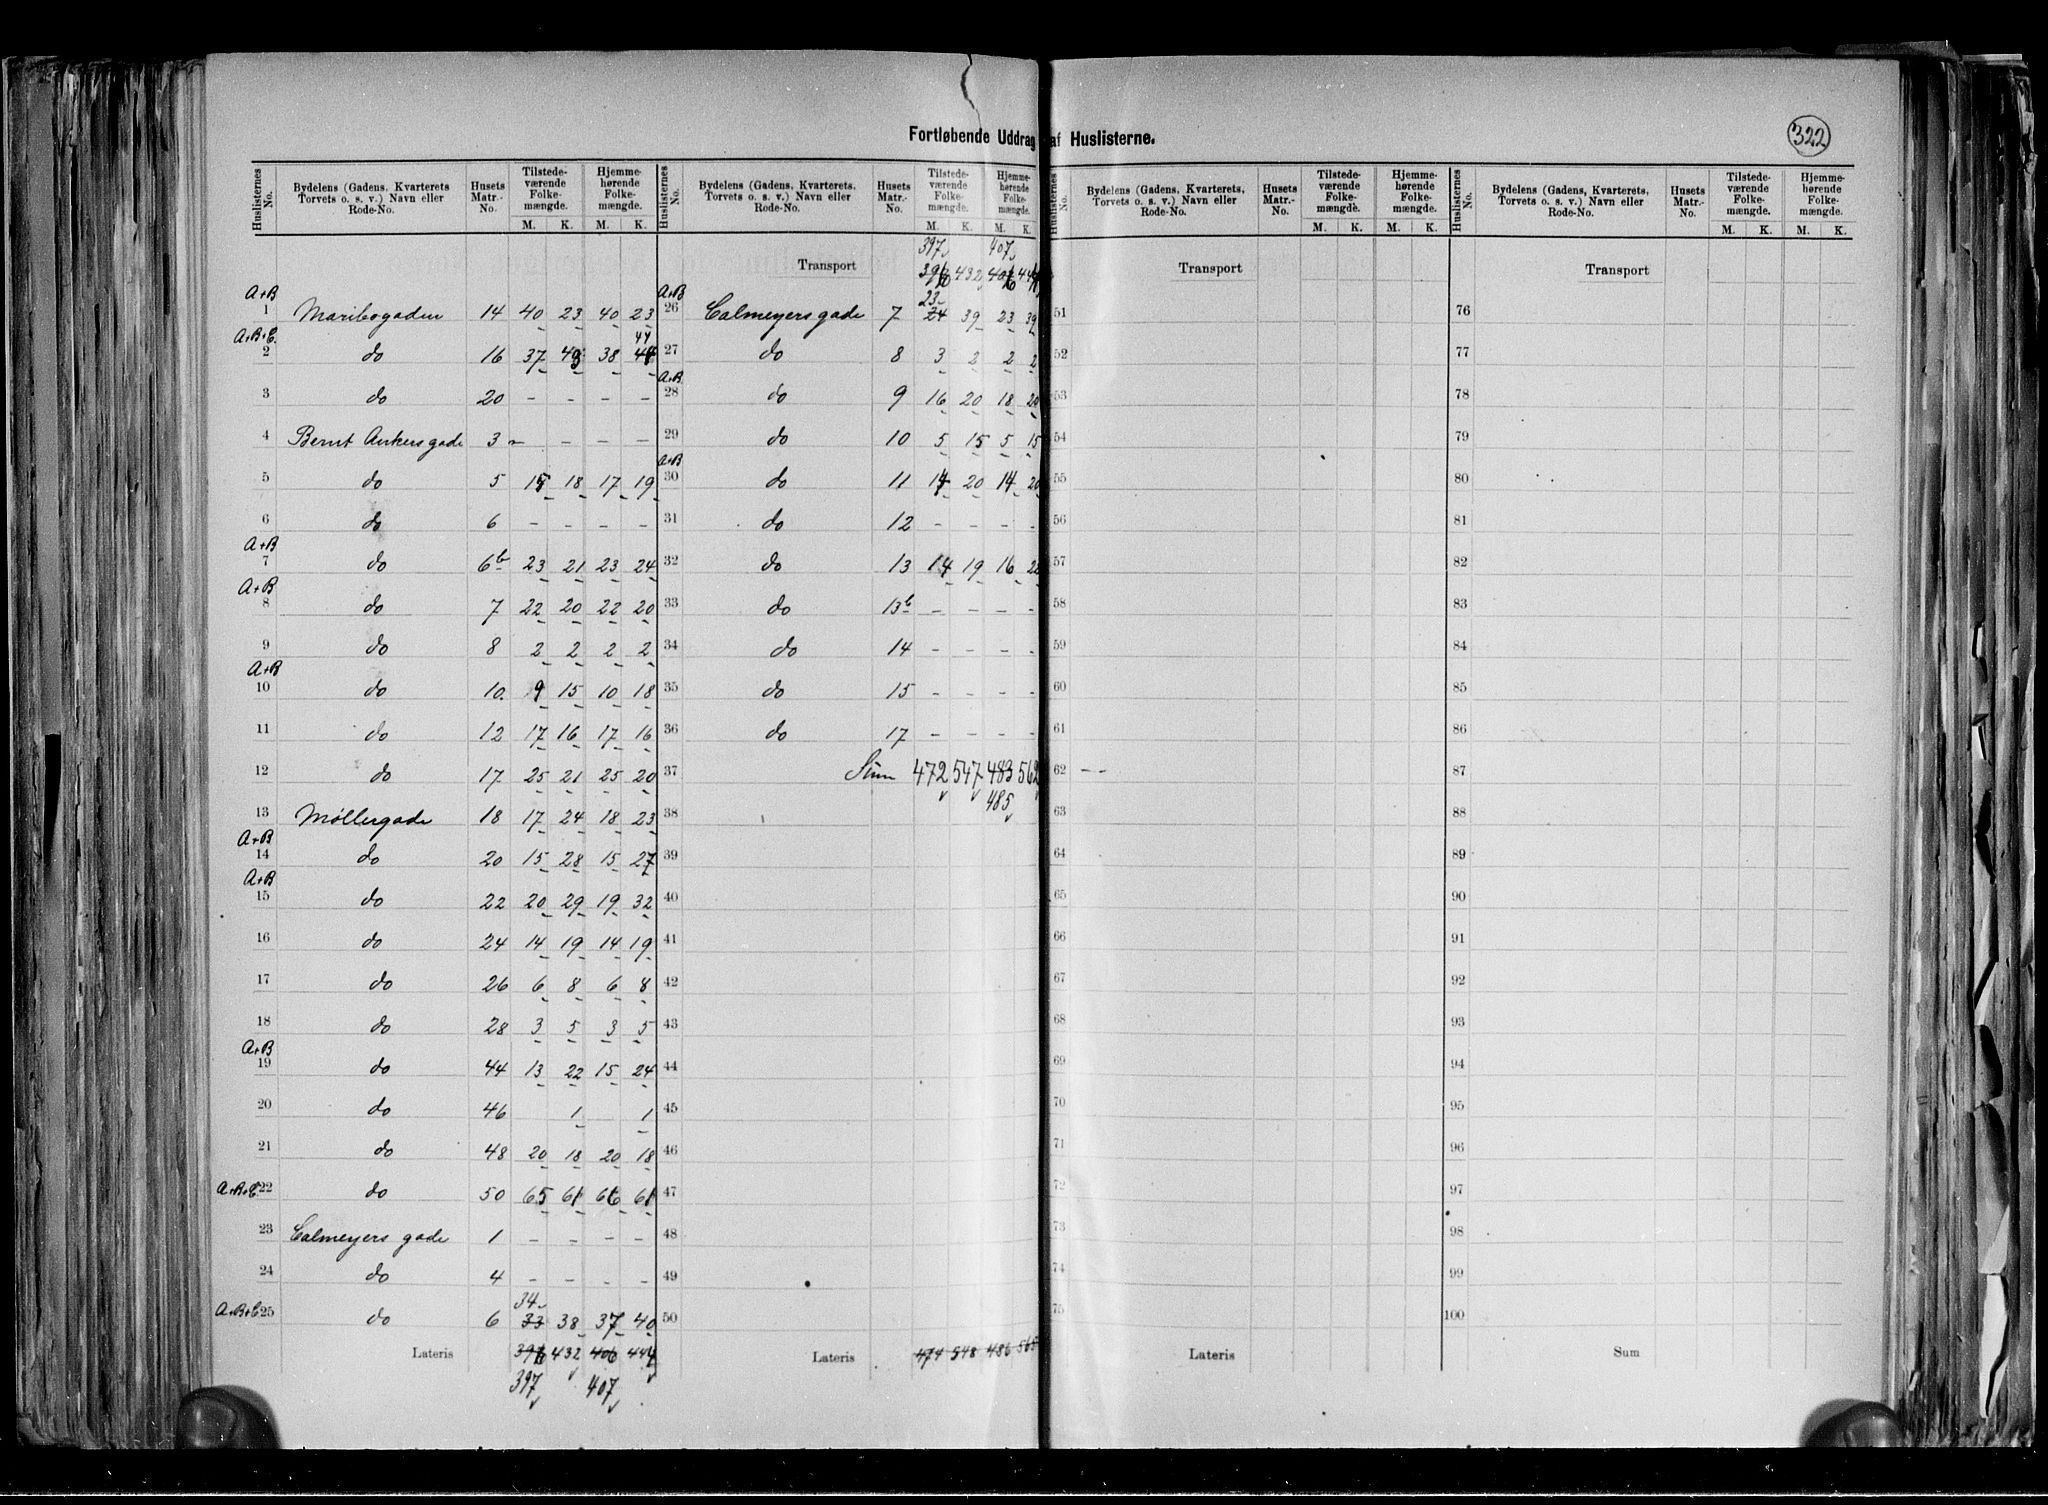 Fortløbende Uddrag af Huslisterne.
322
Huslisternes No. | Bydelens (Gadens, Kvarterets, Torvets o. s. v.) Navn eller Rode-No. | Husets Matr.-No. | Tilstedeværende Folkemængde. M. K. | Hjemmehørende Folkemængde. M. K.
A+B 1 Maribogaden 14 40 23 40 23
A+B+C. 2 do 16 37 43 38 44
3 do 20 – – – –
4 Bernt Ankersgade 3 – – – –
5 do 5 15 18 17 19
6 do 6 – – – –
A+B 7 do 6b 23 21 23 24
A+B 8 do 7 22 20 22 20
9 do 8 2 2 2 2
A+B 10 do 10. 9 15 10 18
11 do 12 17 16 17 16
12 do 17 25 21 25 20
13 Møllergade 18 17 24 18 23
A+B 14 do 20 15 28 15 27
A+B 15 do 22 20 29 19 32
16 do 24 14 19 14 19
17 do 26 6 8 6 8
18 do 28 3 5 3 5
A+B 19 do 44 13 22 15 24
20 do 46 1 1
21 do 48 20 18 20 18
A+B+C. 22 do 50 65 61 66 61
23 Calmeyers gade 1 – – – –
24 do 4 – – – –
34
A+B+C 25 do 6 33 38 37 40
Lateris 396 432 406 444
397 407
Huslisternes No. | Bydelens (Gadens, Kvarterets, Torvets o. s. v.) Navn eller Rode-No. | Husets Matr.-No. | Tilstedeværende Folkemængde. M. K. | Hjemmehørende Folkemængde. M. K.
397 407
Transport 396 432 406 444
23
A+B 26 Calmeyersgade 7 24 39 23 39
27 do 8 3 2 2 2
A+B 28 do 9 16 20 18 20
29 do 10 5 15 5 15
A+B 30 do 11 14 20 14 20
31 do 12 – – – –
32 do 13 14 19 16 22
33 do 13b – – – –
34 do 14 – – – –
35 do 15 – – – –
36 do 17 – – – –
37 Sum 472 547 483 562
485
38
39
40
41
42
43
44
45
46
47
48
49
50
Lateris 474 548 486 565
Huslisternes No. | Bydelens (Gadens, Kvarterets, Torvets o. s. v.) Navn eller Rode-No. | Husets Matr.-No. | Tilstedeværende Folkemængde. M. K. | Hjemmehørende Folkemængde. M. K.
Transport
51
52
53
54
55
56
57
58
59
60
61
62 – –
63
64
65
66
67
68
69
70
71
72
73
74
75
Lateris
Huslisternes No. | Bydelens (Gadens, Kvarterets, Torvets o. s. v.) Navn eller Rode-No. | Husets Matr.-No. | Tilstedeværende Folkemængde. M. K. | Hjemmehørende Folkemængde. M. K.
Transport
76
77
78
79
80
81
82
83
84
85
86
87
88
89
90
91
92
93
94
95
96
97
98
99
100
Sum